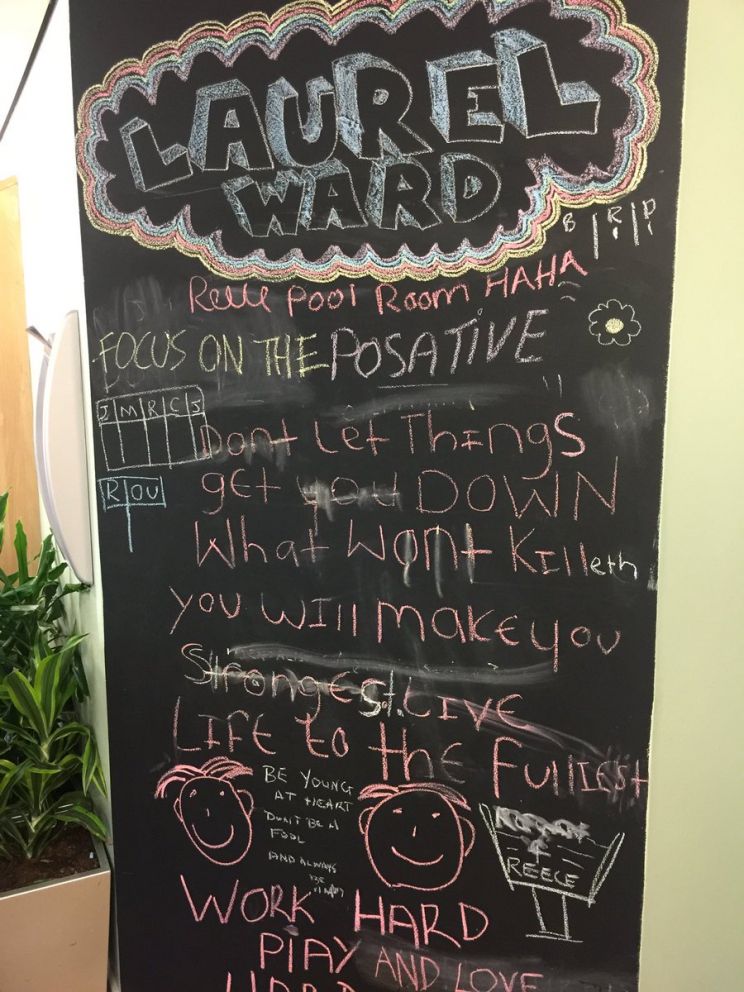 LAUREL
WARD
B R P
Pool Room HAHA
FOCUS ON THE POSATIVE
J M R C S
Dont Let Things
R OU
get you DOWN
What Wont Killeth
you will make you
Strongest. LIVE
LIFE to the Fulliest
BE YOUNG
AT HEART
DON'T BE A
FOOL
AND ALWAYS
BE
REECE
WORK HARD
PlAY AND LOVE
HARD